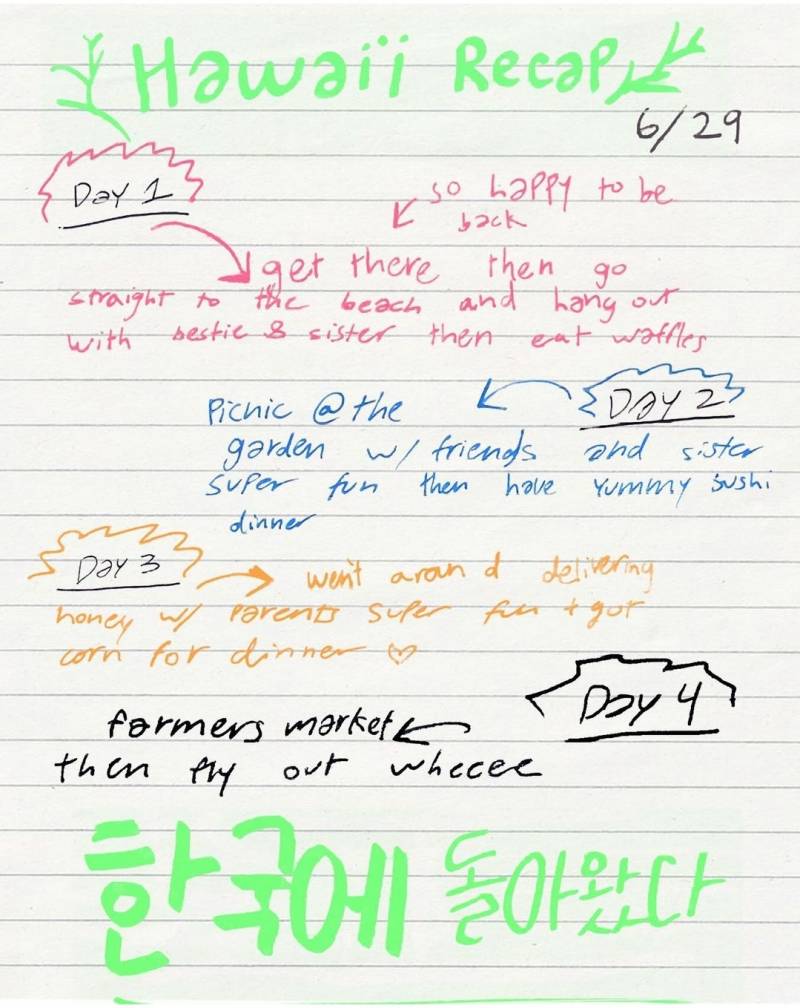 Hawaii Recap
6/29
Day 1
so happy to be
back
get there then go
straight to the beach and hang out
with bestie & sister then eat waffles
Day 2
Picnic @ the
garden w/ friends and sister
super fun then have yummy sushi
dinner
Day 3
went around delivering
honey w/ parents super fun + got
corn for dinner ♡
Day 4
farmers market
then fly out wheeee
한국에 돌아왔다